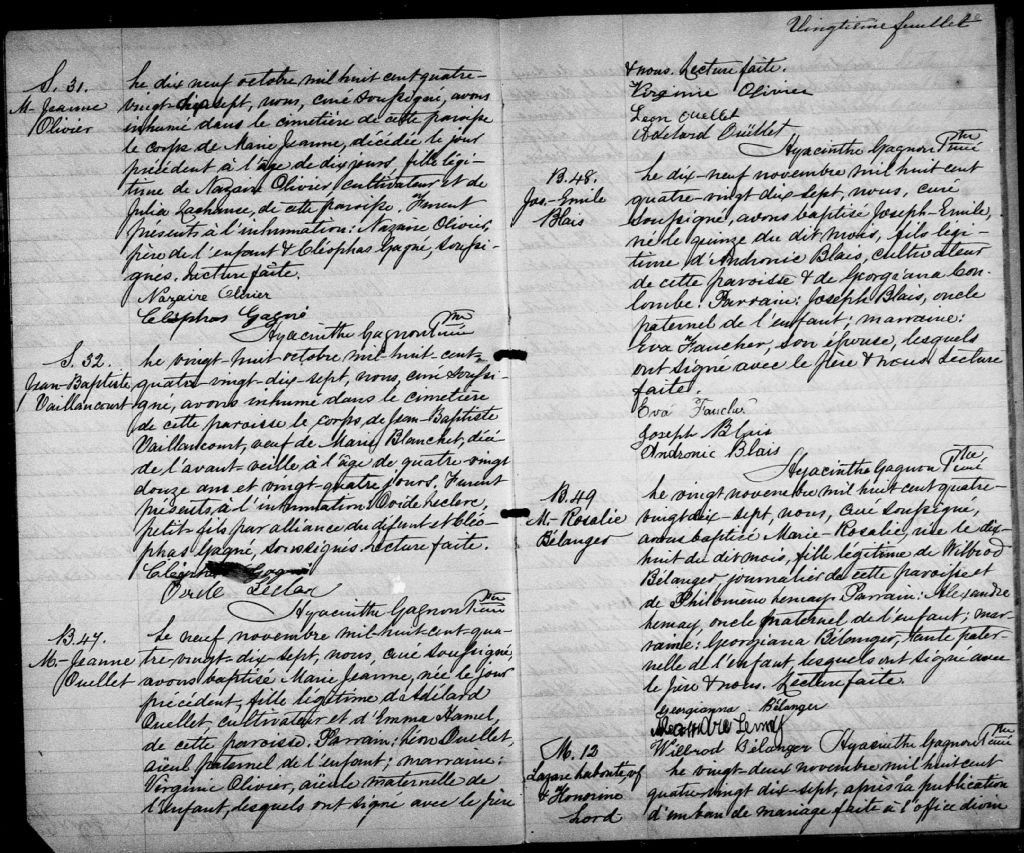 S. 31.
M-Jeanne
Olivier
Le dix neuf octobre mil huit cent quatre-
vingt-dix sept, nous, curé soussigné, avons
inhumé dans le cimetière de cette paroisse
le corps de Marie Jeanne, décédée le jour
précédent à l'âge de dix jours, fille légi-
time de Nazaire Olivier, cultivateur et de
Julia Lachance, de cette paroisse. Furent
présents à l'inhumation: Nazaire Olivier,
père de l'enfant & Cléophas Gagné, soussi-
gnés. Lecture faite.
Nazaire Olivier
Cléophas Gagné
Hyacinthe Gagnon Ptre
curé
S. 32.
Jean-Baptiste
Vaillancourt
Le vingt huit octobre mil huit cent-
quatre-vingt-dix-sept, nous, curé soussi-
gné, avons inhumé dans le cimetière
de cette paroisse le corps de Jean-Baptiste
Vaillancourt, veuf de Marie Blanchet, décé-
dé l'avant veille à l'âge de quatre-vingt
douze ans et vingt-quatre jours, Furent
présents à l'inhumation Ovide Leclerc,
petit-fils par alliance du défunt et Cléo-
phas Gagné, soussignés. Lecture faite.
Cléophas Gagné
Leclar
Hyacinthe Gagnon Ptre
curé
B. 47.
M-Jeanne
Ouellet
Le neuf novembre mil-huit-cent-qua-
tre-vingt-dix-sept, nous, curé soussigné,
avons baptisé Marie Jeanne, née le jour
précédent, fille légitime d'Adélard
Ouellet cultivateur et d'Emma Hamel,
de cette paroisse. Parrain: Léon Ouellet,
aïeul paternel de l'enfant; marraine:
Virginie Olivier, aïeule maternelle de
l'enfant, lesquels ont signé avec le père
Vingtième feuillet
& nous. Lecture faite.
Virginie Olivier
Léon Ouellet
Adélard Ouëllet
Hyacinthe Gagnon Ptre
curé
B. 48.
Jos-Emile
Blais
Le dix-neuf novembre mil huit cent
quatre-vingt dix-sept, nous, curé
soussigné, avons baptisé Joseph-Emile,
né le quinze du dit mois, fils légi-
time d'Andronic Blais, cultivateur
de cette paroisse & de Georgiana Co-
lombe. Parrain: Joseph Blais, oncle
paternel de l'enfant; marraine:
Eva Faucher, son épouse, lesquels
ont signé avec le père & nous Lecture
faite.
Eva Faucher
Joseph Blais
Andronic Blais
Hyacinthe Gagnon Ptre
curé
B. 49
M-Rosalie
Bélanger
Le vingt novembre mil huit cent quatre-
vingt dix-sept, nous, curé soussigné,
avons baptisé Marie-Rosalie, née le dix-
huit du dit mois, fille légitime de Wilbrod
Bélanger, journalier de cette paroisse et
de Philomène Lemay. Parrain: Alexandre
Lemay, oncle maternel de l'enfant; mar-
raine: Georgiana Bélanger, tante pater-
nelle de l'enfant, lesquels ont signé avec
le père & nous. Lecture faite.
Georgianna Bélanger
Alexandre Lemay
Willrod Bélanger Hyacinthe Gagnon Ptre
curé
M. 12
Lazare
& Honorine
Lord
Le vingt-deux novembre mil huit cent
quatre vingt dix-sept, après la publication
d'un ban de mariage faite à l'office divin